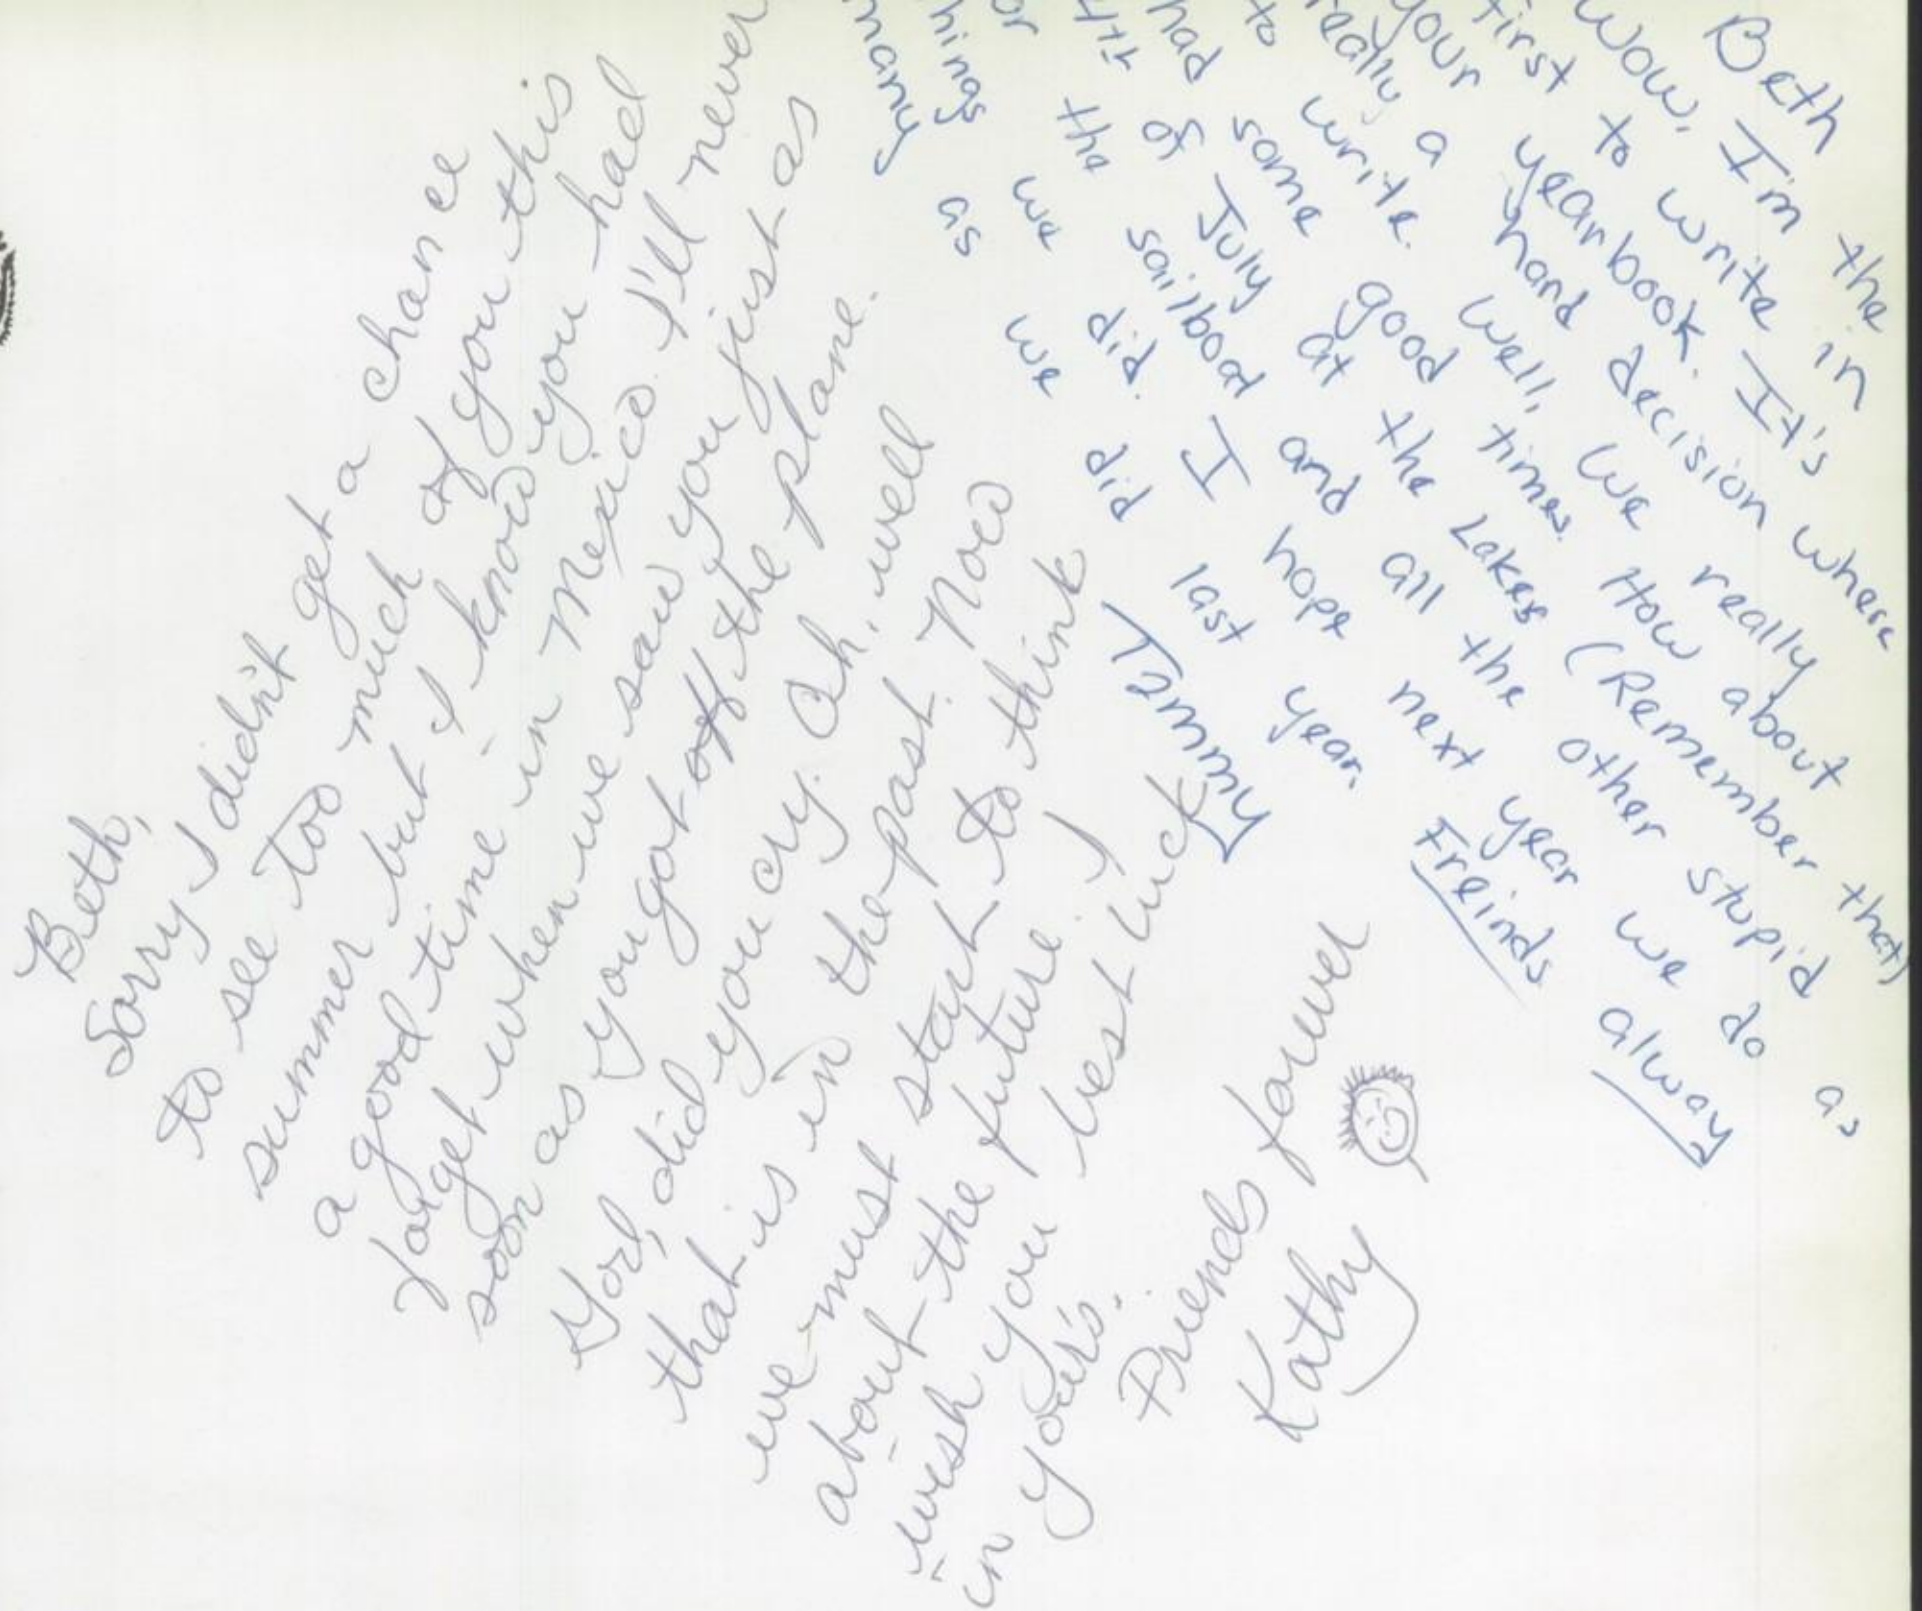 Beth,
Sorry I didn't get a chance
to see too much of you this
summer but I know you had
a good time in Mexico. I'll never
forget when we saw you just as
soon as you got off the plane.
God, did you cry. Oh, well
that is in the past. Now
we must start to think
about the future. I
wish you best luck
in your's.
Friends forever
Kathy
Beth
Wow, I'm the
first to write in
your yearbook. It's
really a hard decision where
to write. Well, we really
had some good times. How about
4th of July at the Lakes (Remember that)
or the sailboat and all the other stupid
things we did. I hope next year we do as
many as we did last year.
Freinds alway
Tammy